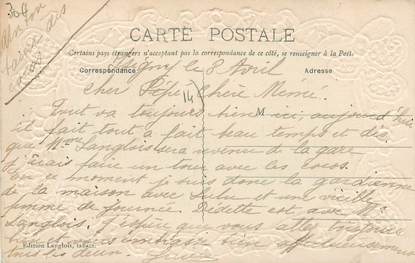 CARTE POSTALE
Certains pays étrangers n'acceptant pas la correspondance de ce côté, se renseigner à la Poste.
Correspondance
Adresse
le 8 Avril
Cher Pépé, Chère Mémé.
M
Tout va toujours bien ici, aujourd'hui
il fait tout à fait beau temps et dès
que Mme Langlois sera revenue de la gare
j'irai faire un tour avec les
En ce moment je suis donc la gardienne
de la maison avec Lulu et une vieille
femme de journée. Dédette est avec Mr
Langlois. J'espère que vous allez
embrasse bien affectueusement
tous les deux.
Edition Langlois,